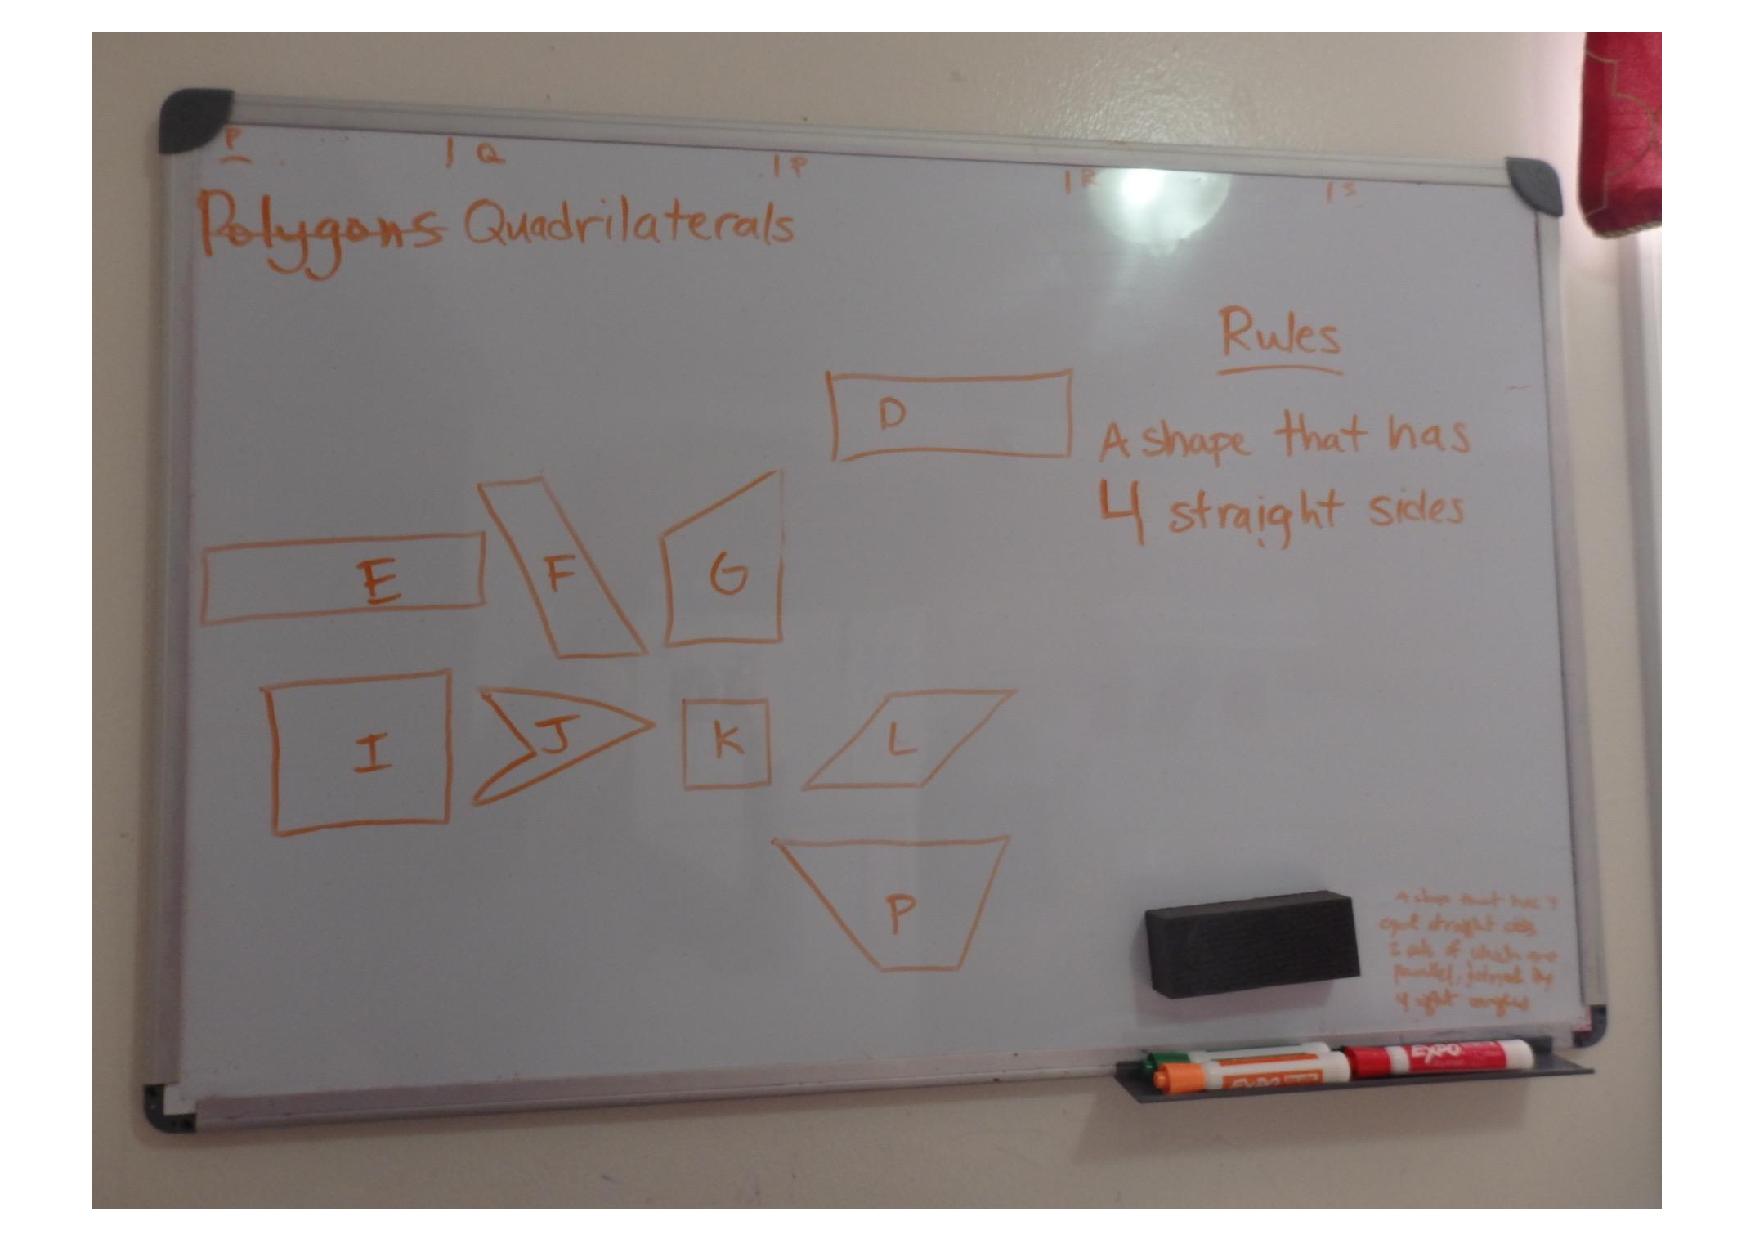 P | Q | P | R | S
Polygons Quadrilaterals
Rules
D
A shape that has
4 straight sides
E F G
I J K L
P
A shape that has 4
equal straight
2 of which are
parallel, by
4 right
EXPO EXPO